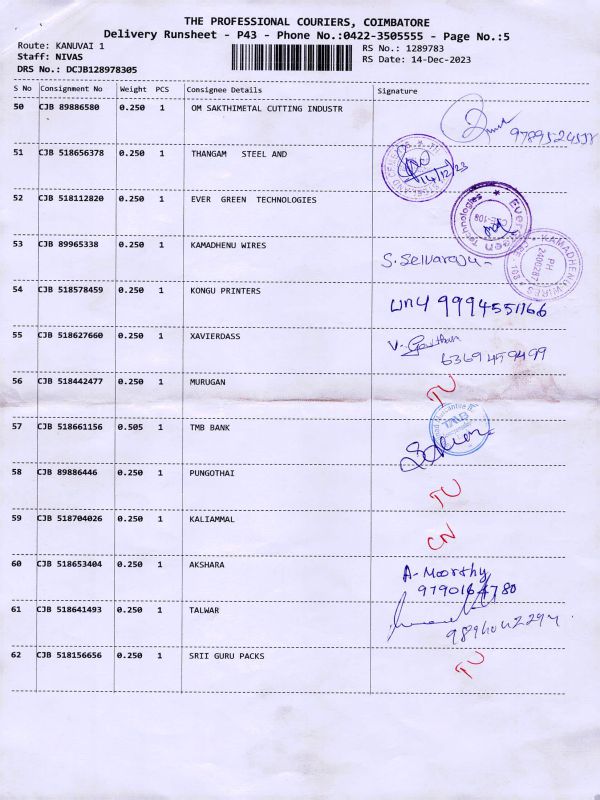 THE PROFESSIONAL COURIERS, COIMBATORE
Delivery Runsheet - P43 - Phone No.:0422-3505555 - Page No.:5
Route: KANUVAI 1 RS No.: 1289783
Staff: NIVAS RS Date: 14-Dec-2023
DRS No.: DCJB128978305
S No Consignment No Weight PCS Consignee Details Signature
50 CJB 89886580 0.250 1 OM SAKTHIMETAL CUTTING INDUSTR
51 CJB 518656378 0.250 1 THANGAM STEEL AND 14/12/23
52 CJB 518112820 0.250 1 EVER GREEN TECHNOLOGIES Ever Green Technologies
53 CJB 89965338 0.250 1 KAMADHENU WIRES S. Selvaraju KAMADHENU WIRES PH
54 CJB 518578459 0.250 1 KONGU PRINTERS 9994551166
55 CJB 518627660 0.250 1 XAVIERDASS V. Gowtham
56 CJB 518442477 0.250 1 MURUGAN TU
57 CJB 518661156 0.505 1 TMB BANK TMB
58 CJB 89886446 0.250 1 PUNGOTHAI TU
59 CJB 518704026 0.250 1 KALIAMMAL CN
60 CJB 518653404 0.250 1 AKSHARA A-Moorthy
9790164780
61 CJB 518641493 0.250 1 TALWAR
62 CJB 518156656 0.250 1 SRII GURU PACKS TU